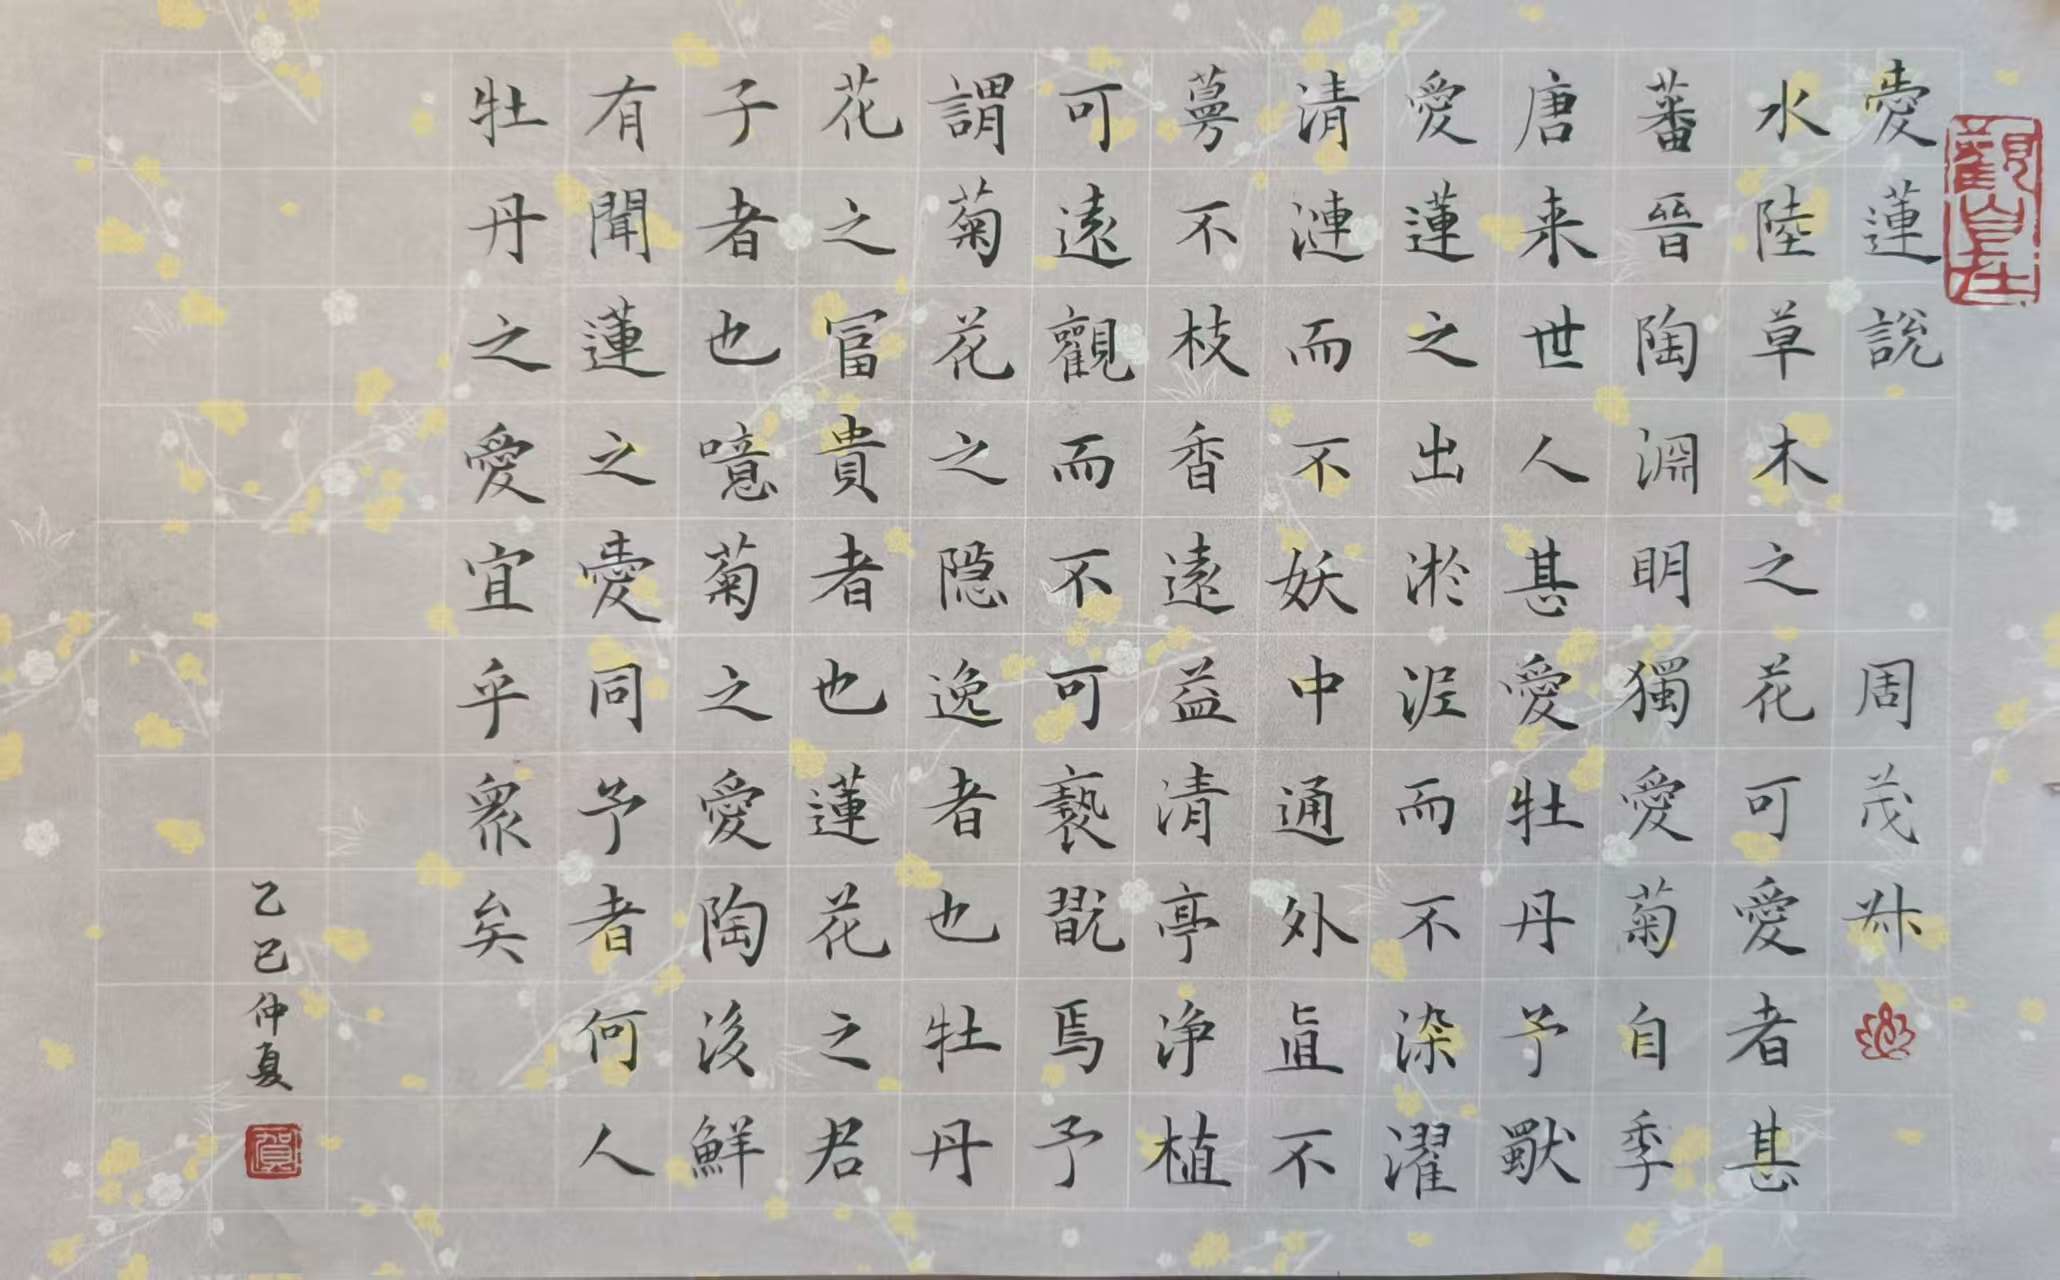 愛蓮說 周茂叔
水陸草木之花可愛者甚
蕃晉陶淵明獨愛菊自季
唐来世人甚愛牡丹予獨
愛蓮之出淤泥而不染濯
清漣而不妖中通外直不
蔓不枝香遠益清亭浄植
可遠觀而不可褻翫焉予
謂菊花之隐逸者也牡丹
花之冨貴者也蓮花之君
子者也噫菊之愛陶後鮮
有聞蓮之愛同予者何人
牡丹之愛宜乎眾矣
乙巳仲夏
觀自在
賀